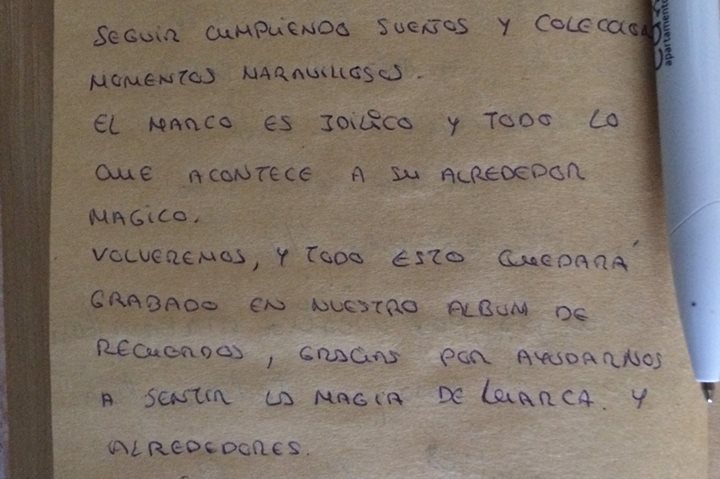 SEGUIR CUMPLIENDO SUEÑOS Y
MOMENTOS MARAVILLOSOS.
EL MARCO ES IDILICO Y TODO LO
QUE ACONTECE A SU ALREDEDOR
MAGICO.
VOLVEREMOS, Y TODO ESTO QUEDARÁ
GRABADO EN NUESTRO ALBUM DE
RECUERDOS, GRACIAS POR AYUDARNOS
A SENTIR LA MAGIA DE Y
ALREDEDORES.
apartamento